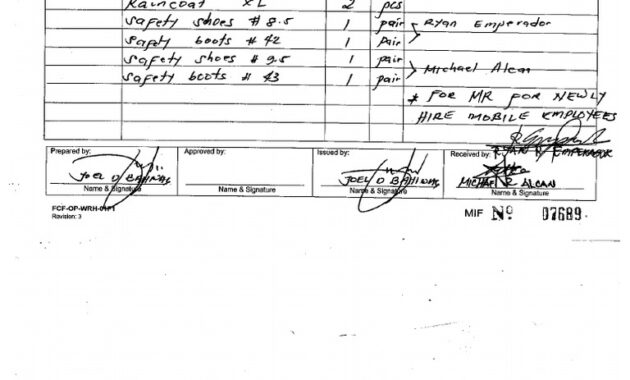 Raincoat XL 2 pcs
safety shoes # 8.5 1 pair Ryan Emperador
safety boots # 42 1 pair
safety shoes # 9.5 1 pair Michael Alcan
safety boots # 43 1 pair
* FOR MR FOR NEWLY
HIRE MOBILE EMPLOYEES
Prepared by: Approved by: Issued by: Received by: RYAN EMPERADOR
JOEL D JOEL D MICHAEL R ALCAN
Name & Signature Name & Signature Name & Signature Name & Signature
FCF-OP-WRH-01F1
Revision: 3
MIF Nº 07689